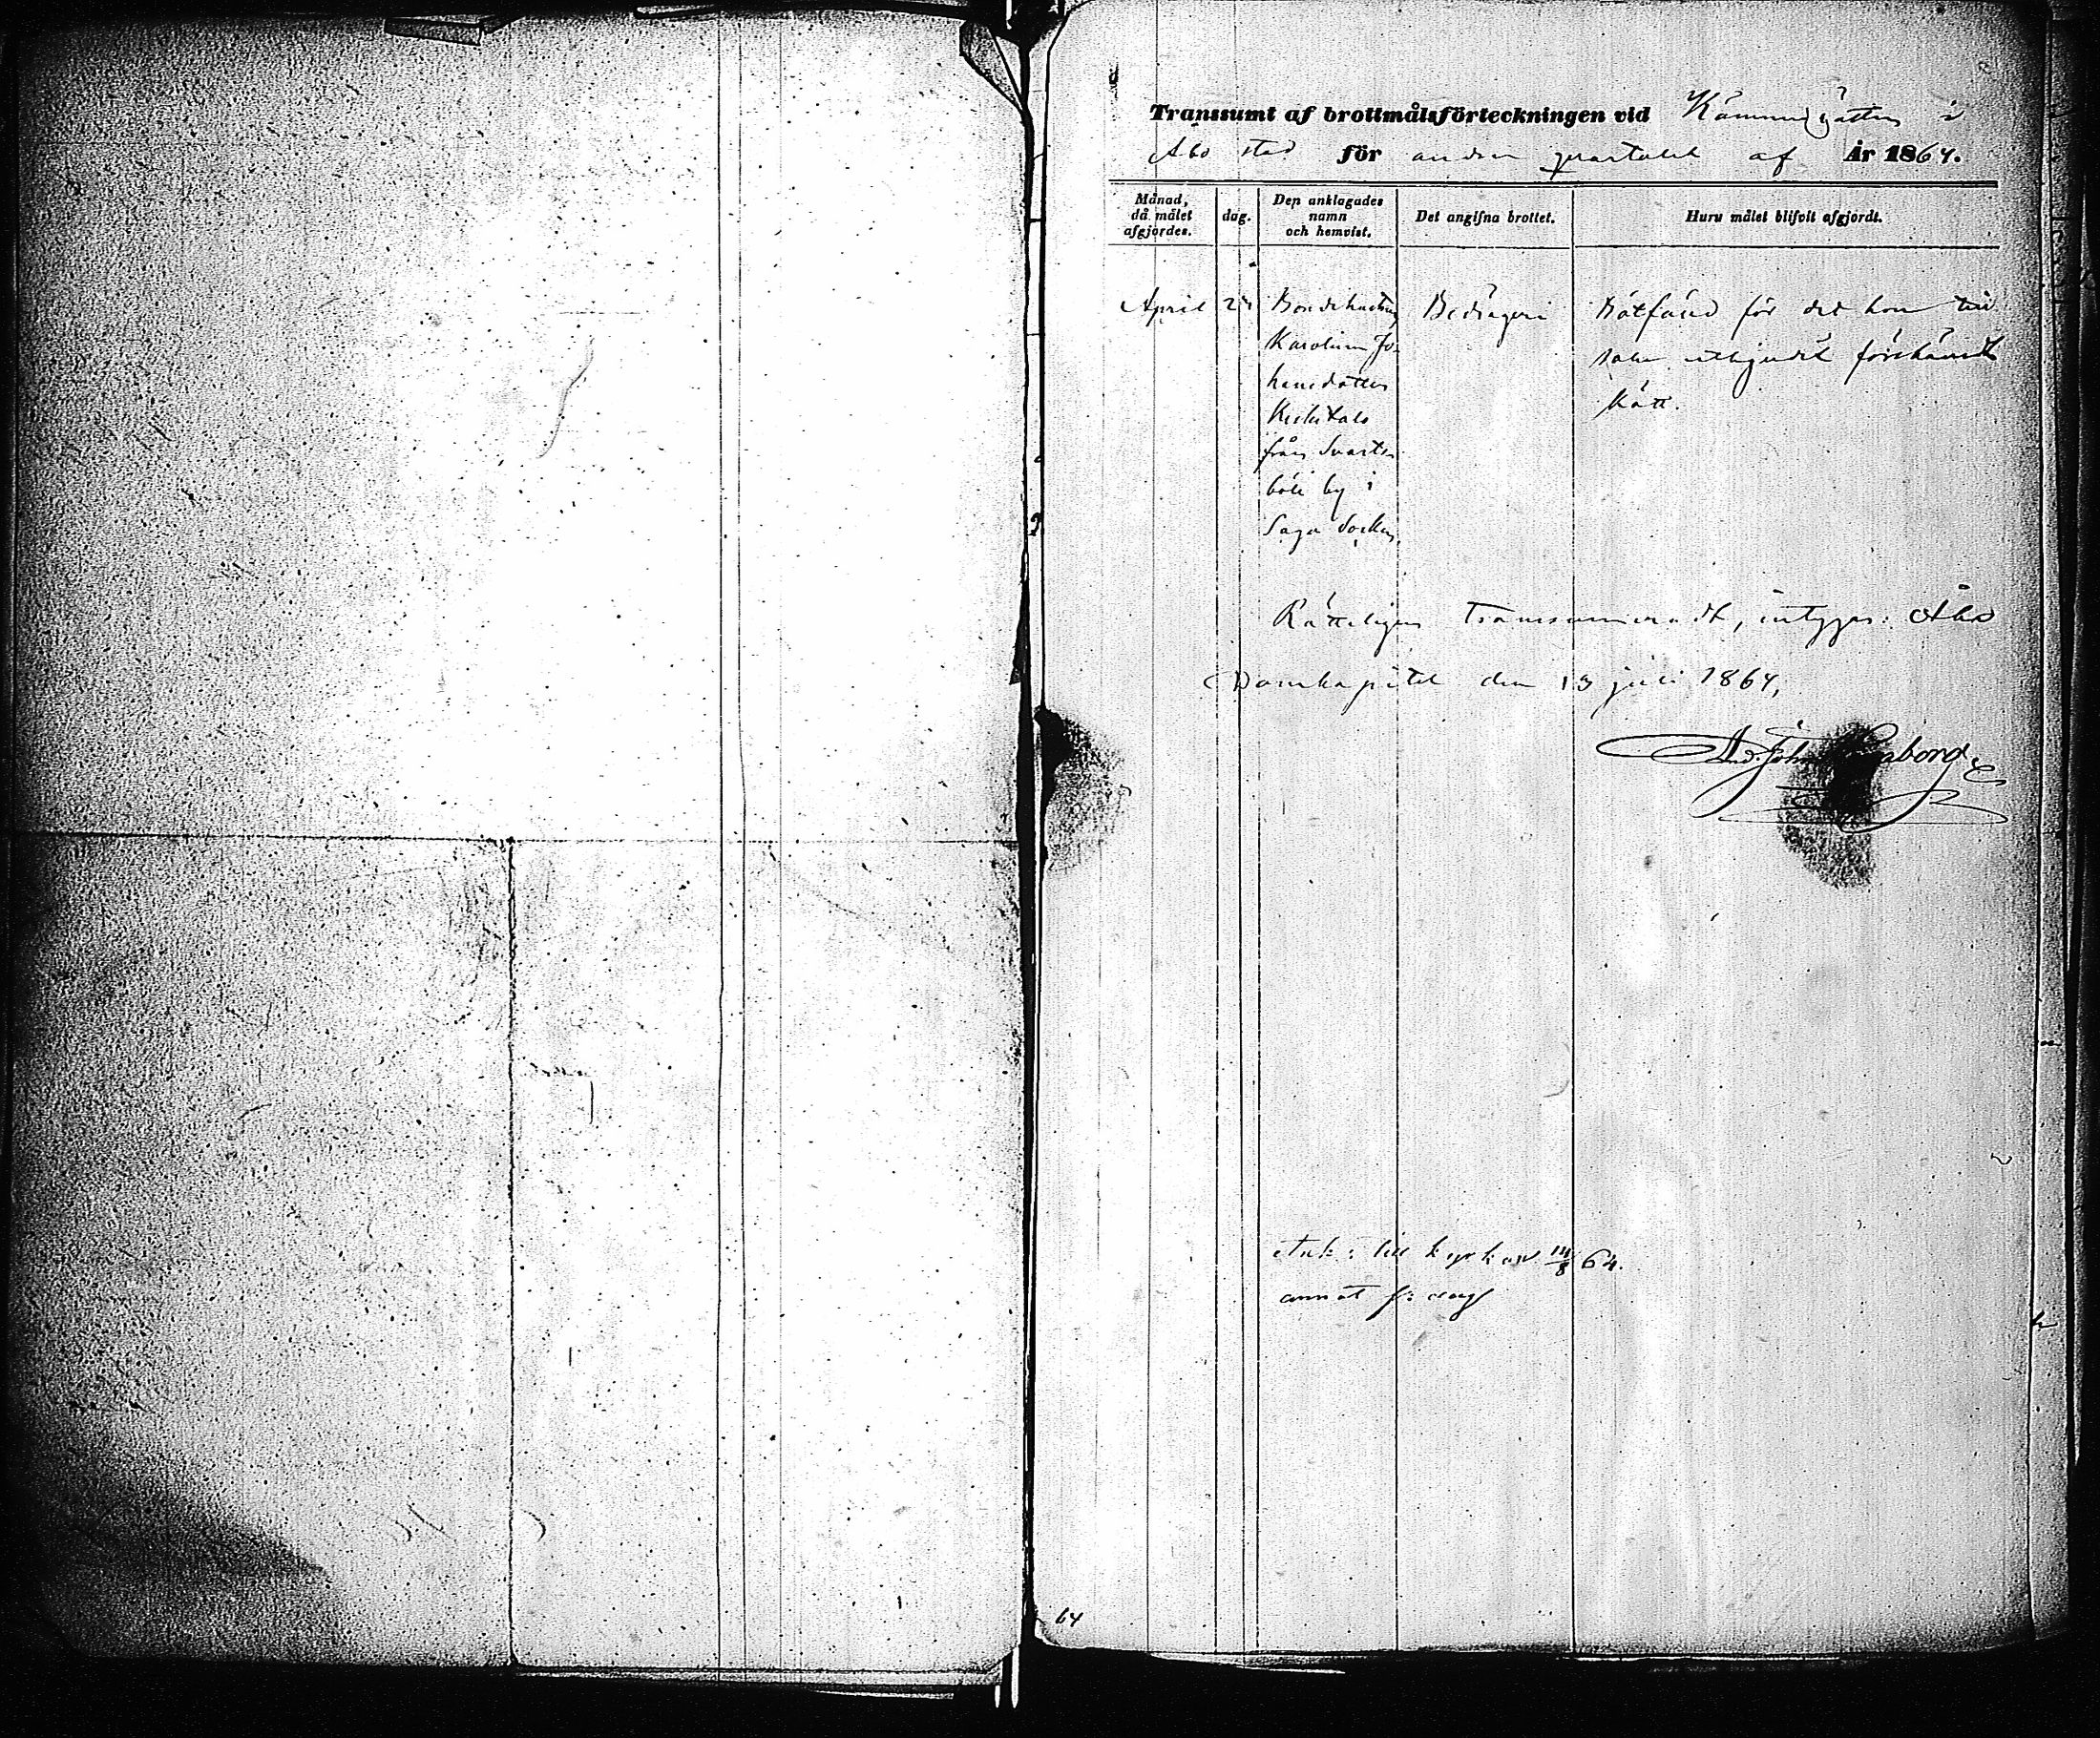 Transsumt af brottmålsförteckningen vid Kämnersrätten i
Åbo stad för andra quartalet af År 1864.
Månad, då målet afgjordes.
dag.
Den anklagades namn och hemvist.
Det angifna brottet.
Huru målet blifvit afgjordt.
April
Bondehustru
Karolina Jo-
hansdotter
från Svarte-
böle by i
Sagu Socken.
Bedrägeri
Bötfäld för det hon till
salu utbjudit förskämdt
kött.
Rätteligen transsumeradt, intygar: Åbo
Domkapitel den 13 juli 1864,
Ank: till kyrkoh 14/8 64.
annat s: dag
64